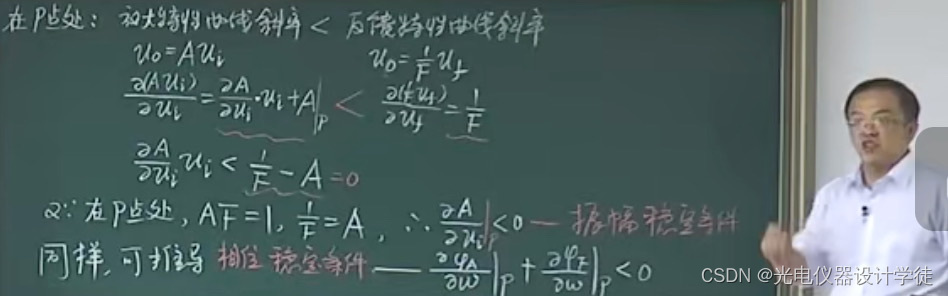 在P点处：放大特性曲线斜率 < 反馈特性曲线斜率
u₀=Auᵢ u₀=1/F u_f
∂(Auᵢ)/∂uᵢ=∂A/∂uᵢ·uᵢ+A|_P < ∂(1/F u_f)/∂u_f=1/F
∂A/∂uᵢ uᵢ < 1/F − A=0
又∵在P点处, AF=1, 1/F=A, ∴ ∂A/∂uᵢ|_P<0 — 振幅稳定条件
同样,可推导 相位稳定条件 — ∂φ_A/∂ω|_P + ∂φ_F/∂ω|_P <0
CSDN @光电仪器设计学徒